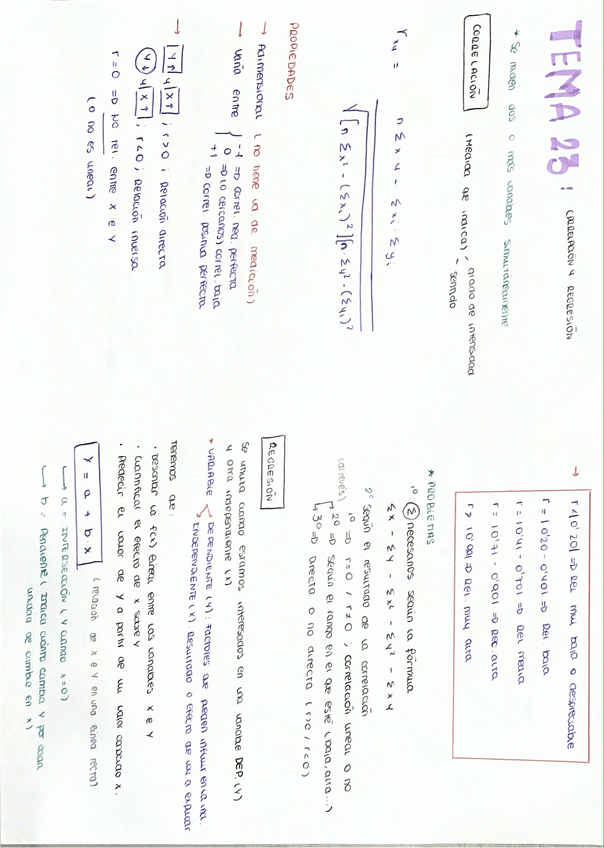 TEMA 23: CORRELACIÓN Y REGRESIÓN
* Se miden dos o más variables simultáneamente
CORRELACIÓN (Medida de indica) grado de intensidad
sentido
r xy = n Σx·y - Σxi · Σyi
√[n Σx² - (Σxi)²][n · Σy² - (Σyi)²
PROPIEDADES
→ Adimensional (no tiene ud de medición)
→ varía entre { -1 => correl. neg. perfecta
0 => (o cercanos) correl baja
+1 => correl positiva perfecta
→ Y↑ y X↑ ; r>0 ; Relación directa
Y↓ y X↑ ; r<0 ; Relación inversa
r=0 => NO rel. entre x e y
(o no es lineal)
→ r<|0'20| => Rel muy baja o despreciable
r = |0'20 - 0'40| => Rel baja
r = |0'41 - 0'70| => Rel media
r = |0'71 - 0'90| => Rel alta
r > |0'90| => Rel muy alta
* PROBLEMAS
1º Σ necesarios según la fórmula
Σx - Σy - Σx² - Σy² - Σxy
2º según el resultado de la correlación
1º => r=0 / r≠0 ; correlación lineal o no
(al revés) 2º => según el rango en el que esté (baja, alta...)
3º => Directa o no directa (r>0 / r<0)
REGRESIÓN
Se utiliza cuando estamos interesados en una variable DEP. (Y)
y otra independiente (X)
* VARIABLE DEPENDIENTE (Y): Factores que pueden influir en la ind.
INDEPENDIENTE (X): Resultado o efecto de va a explicar
Tenemos que:
· Describir la f(x) lineal entre las variables X e Y
· Cuantificar el efecto de x sobre y
· Predecir el valor de y a partir de un valor conocido x.
Y = a + b·x (relación de x e y en una línea recta)
→ a = INTERSECCIÓN (Y cuando x=0)
→ b = Pendiente (Indica cuánto cambia y por cada
unidad de cambio en x)